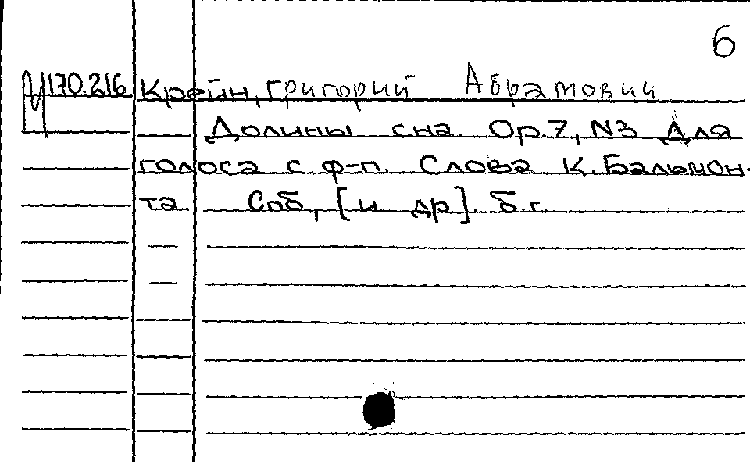 6
У170.216 Крейн, Григорий Абрамович
Долины сна. Op.7, N3 Для
голоса с ф-п. Слова К. Бальмон-
та Спб, [и др]. б.г.